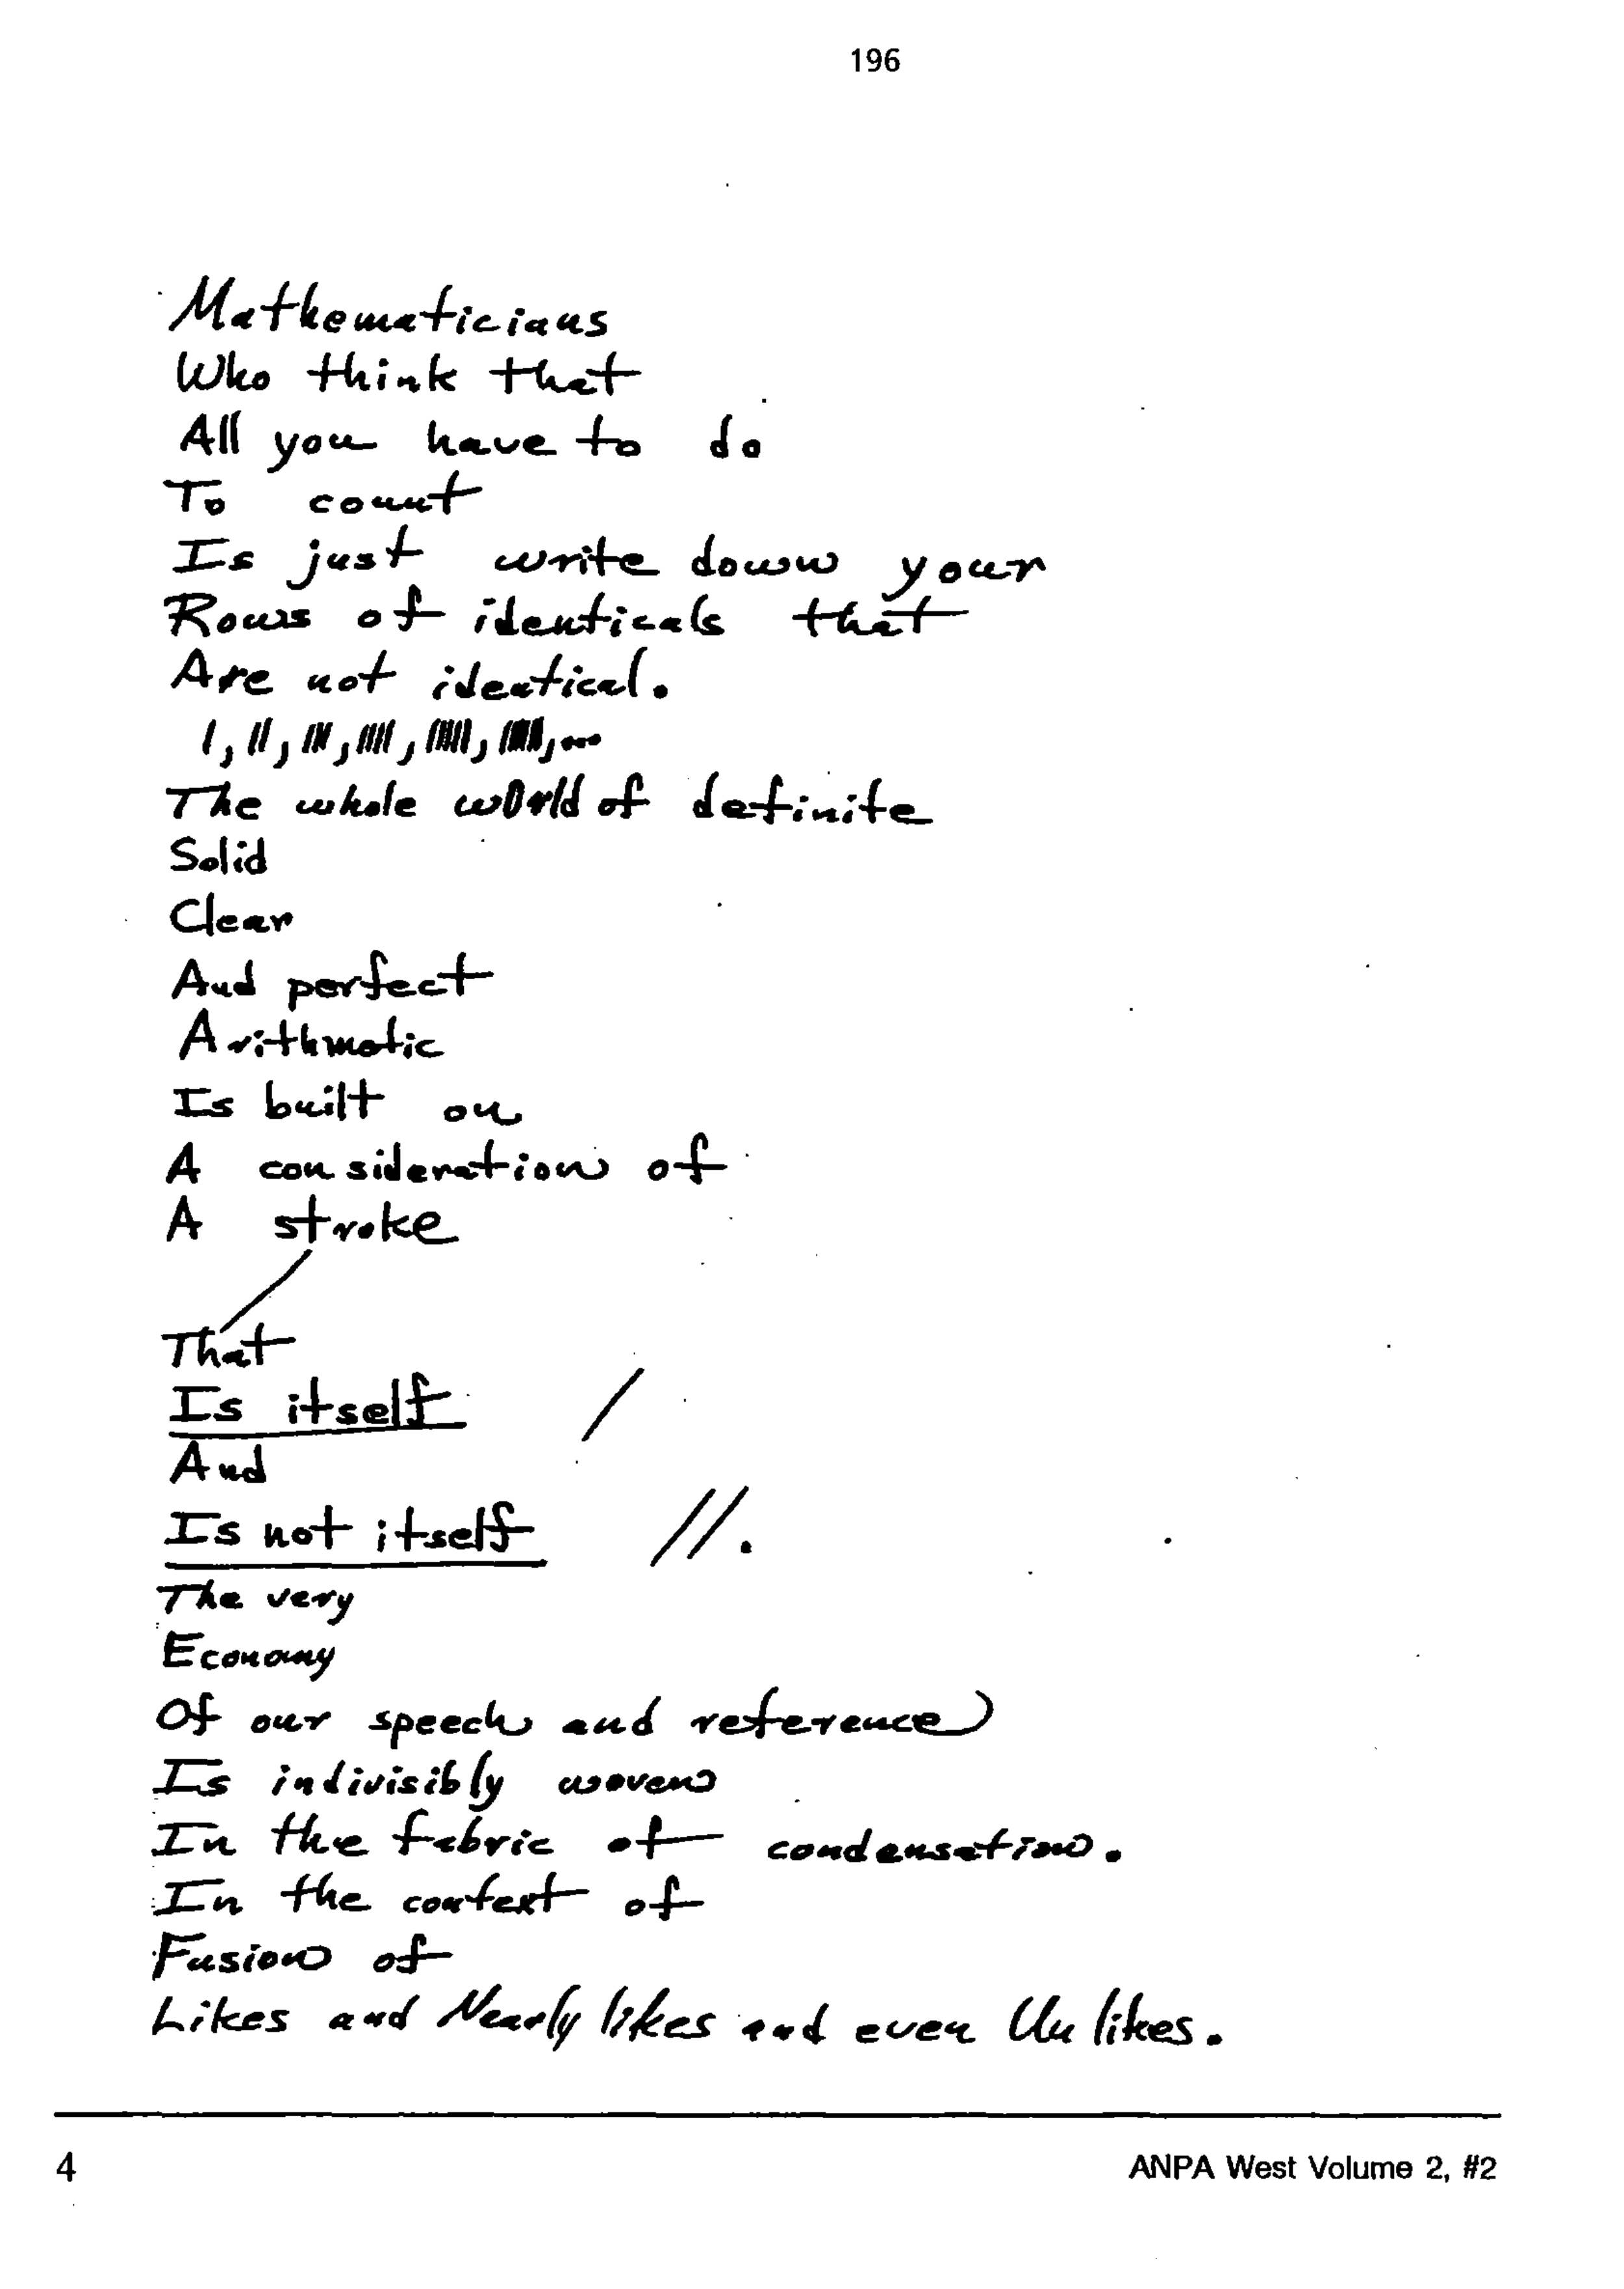 196
Mathematicians
Who think that
All you have to do
To count
Is just write down your
Rows of identicals that
Are not identical.
I, II, III, IIII, IIIII, IIIIII, ...
The whole world of definite
Solid
Clear
And perfect
Arithmetic
Is built on
A consideration of
A stroke
/
That
Is itself /
And
Is not itself //.
The very
Economy
Of our speech and reference
Is indivisibly woven
In the fabric of condensation.
In the context of
Fusion of
Likes and Nearly likes and even Unlikes.
4 ANPA West Volume 2, #2